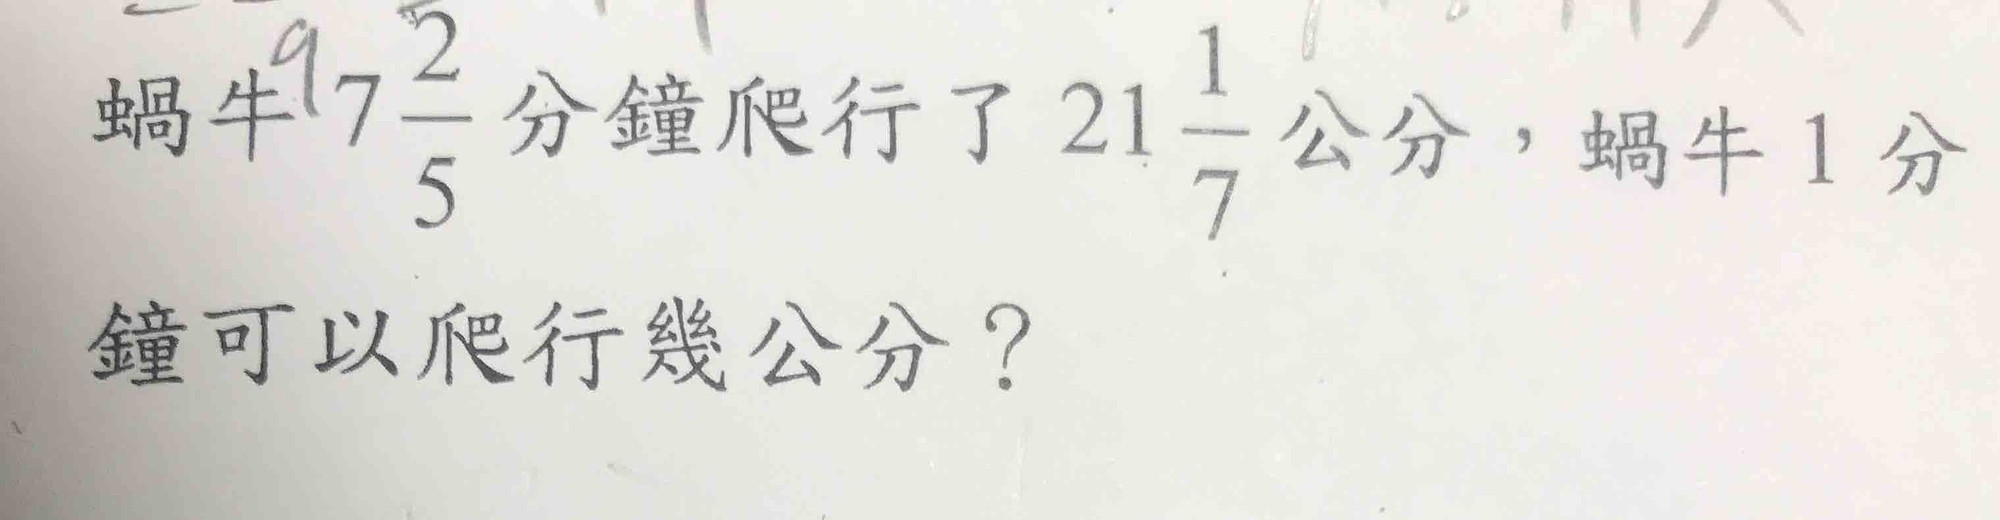 蝸牛 7 2/5 分鐘爬行了 21 1/7 公分,蝸牛 1 分
鐘可以爬行幾公分?